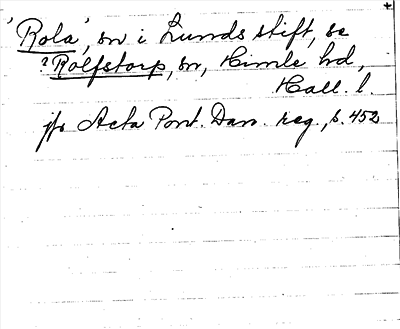 'Rola', sn i Lunds stift, se
?Rolfstorp, sn, Himle hd,
Hall. l.
jfr Acta Pont. Dan. reg., s. 452